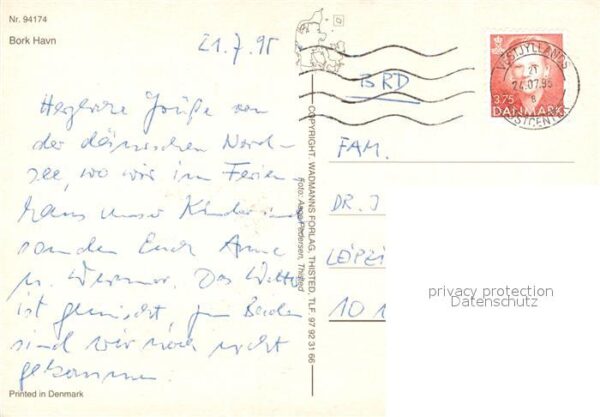 Nr. 94174
Bork Havn
21.7.95
Herzliche Grüße von
der dänischen Nord-
see, wo wir im Ferien-
haus unser Kinder
senden Euch Anne
u. Werner. Das Wetter
ist gemischt, zum Baden
sind wir noch nicht
gekommen.
Printed in Denmark
COPYRIGHT: WADMANNS FORLAG, THISTED, TLF. 97 92 31 66
Foto: Aage Pedersen, Thisted
BRD
VESTJYLLANDS
24.07.95
POSTCENTER
3.75
DANMARK
FAM.
DR. J
LEIPZI
10 1
privacy protection
Datenschutz